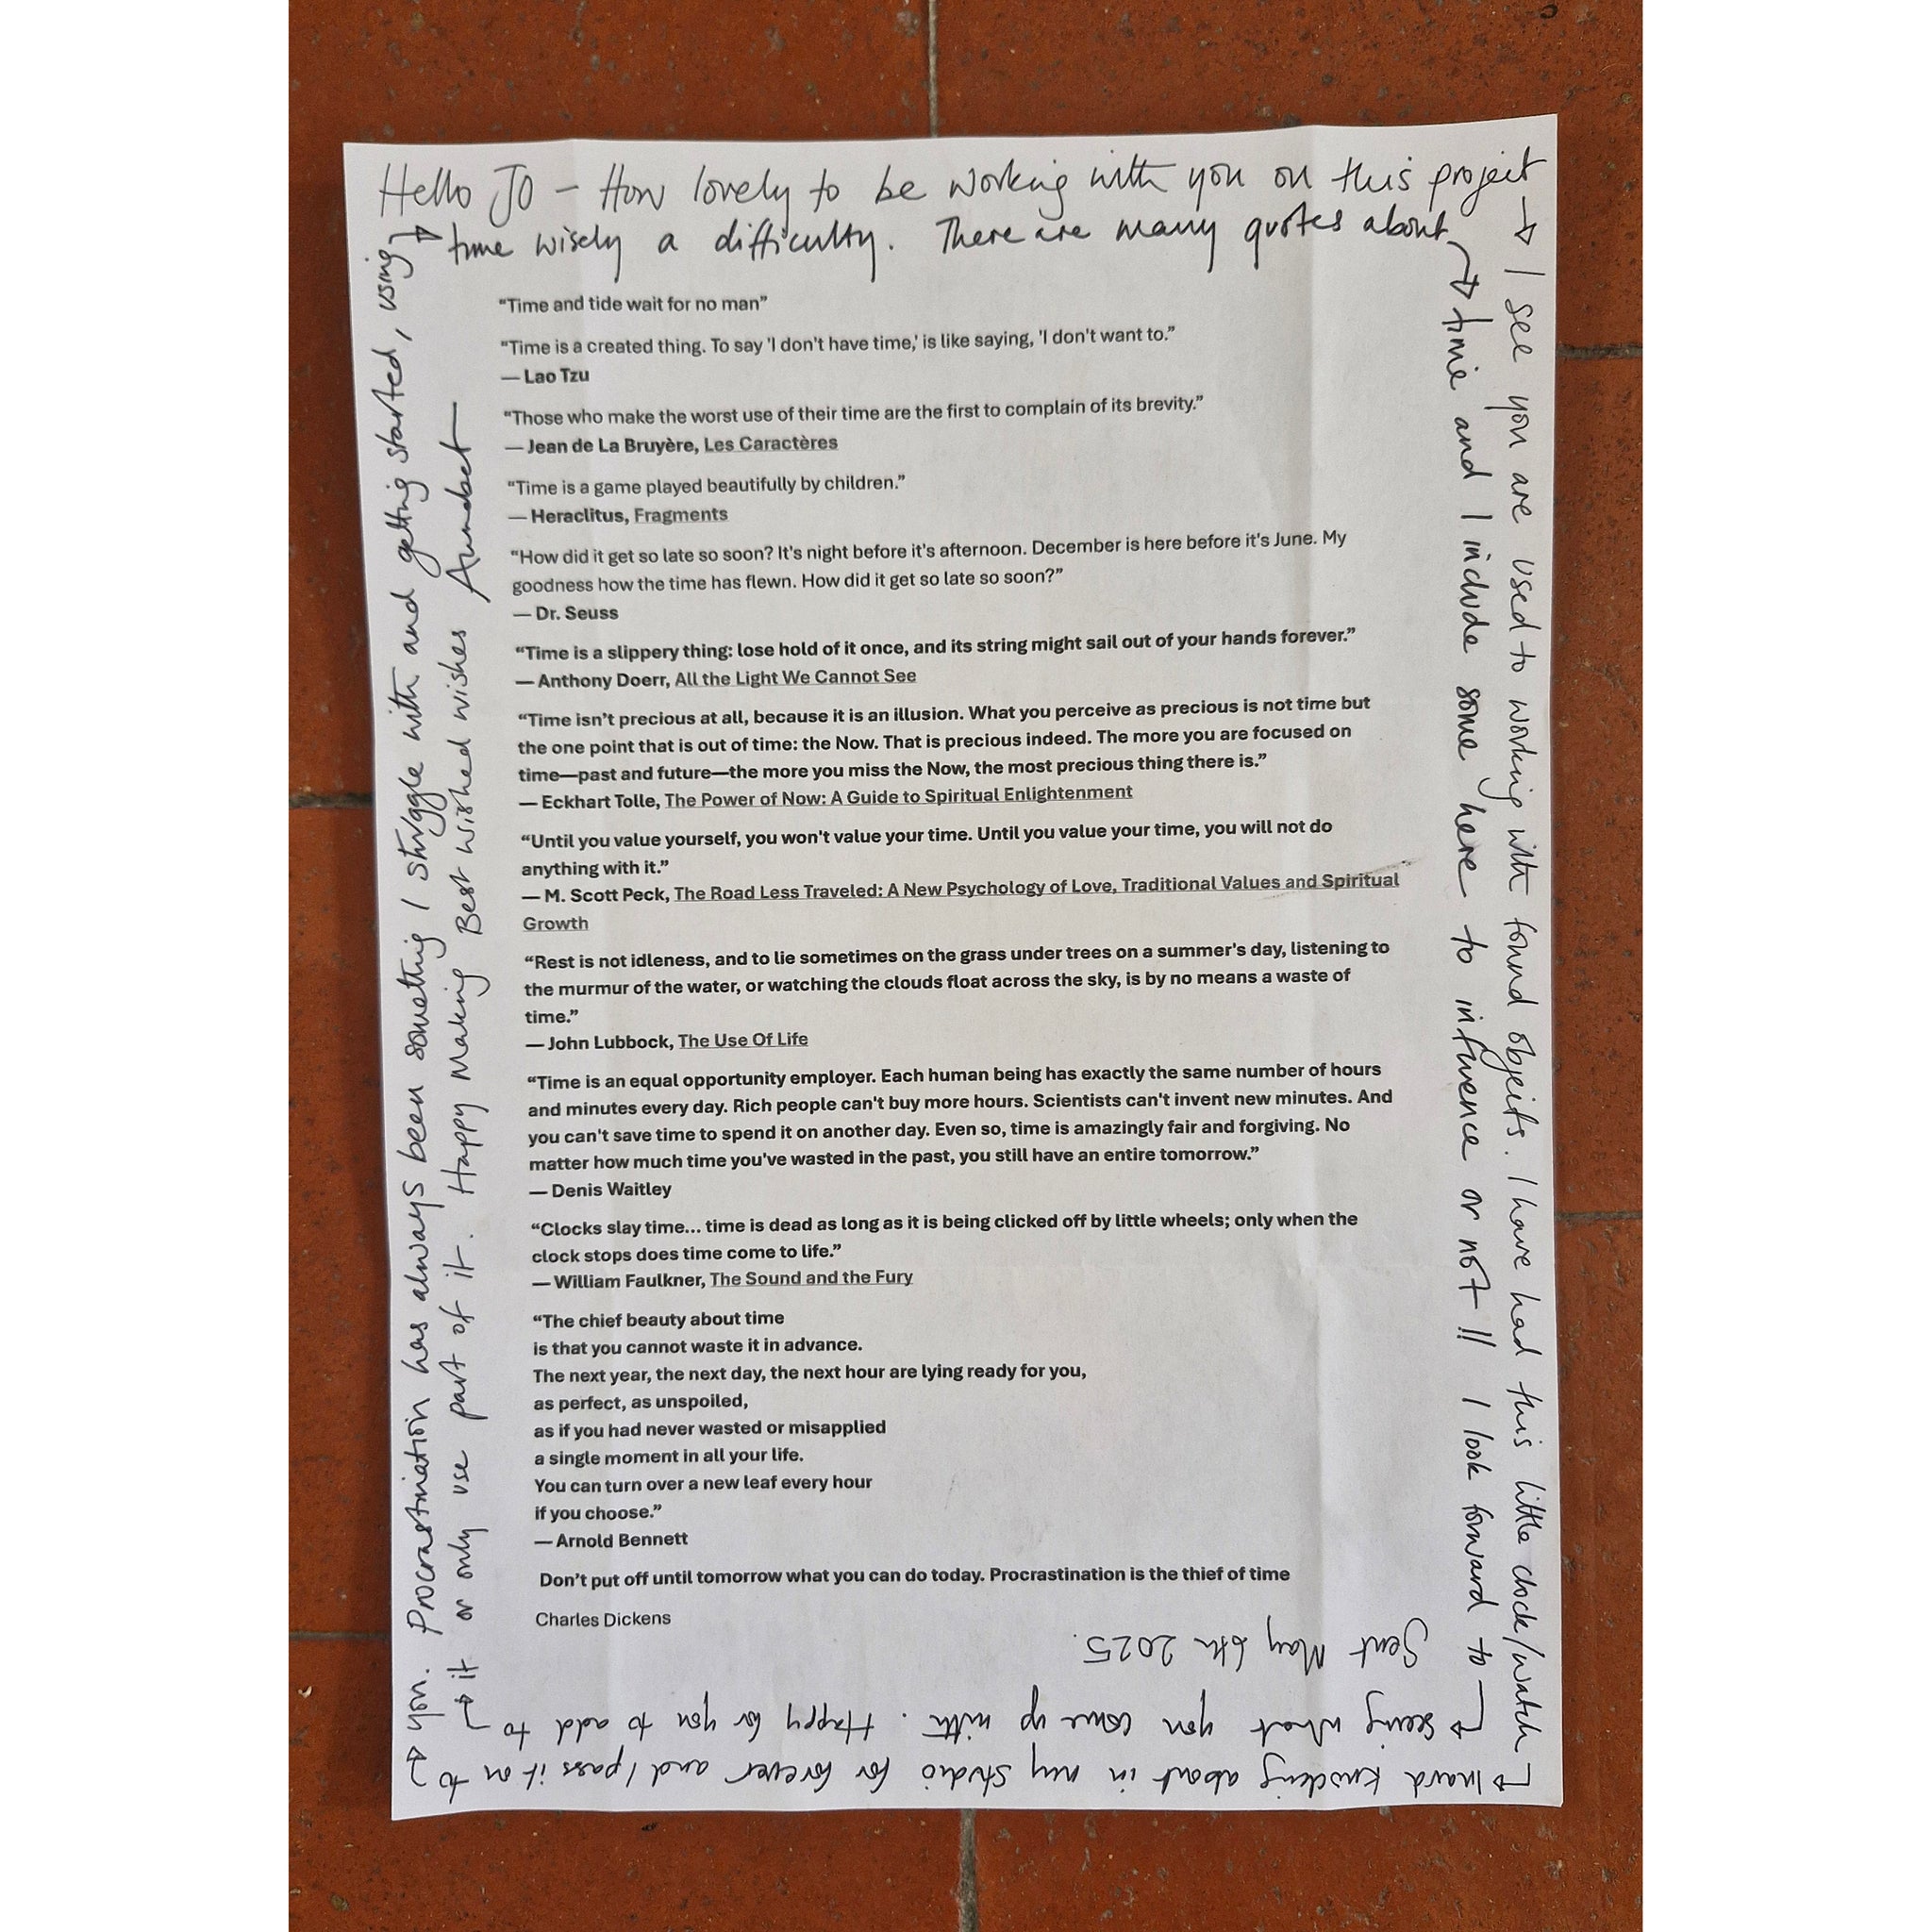 Hello JO – How lovely to be working with you on this project
I see you are used to working with found objects. I have had this little clock/watch
inard knocking about in my studio for forever and I pass it on to
you. Procrastination has always been something I struggle with and getting started, using
time wisely a difficulty. There are many quotes about
time and I include some here to influence or not!! I look forward to
seeing what you come up with. Happy for you to add to
it or only use part of it. Happy Making Best wished wishes
Sent May 6th 2025.
“Time and tide wait for no man”
“Time is a created thing. To say 'I don't have time,' is like saying, 'I don't want to.”
— Lao Tzu
“Those who make the worst use of their time are the first to complain of its brevity.”
— Jean de La Bruyère, Les Caractères
“Time is a game played beautifully by children.”
— Heraclitus, Fragments
“How did it get so late so soon? It's night before it's afternoon. December is here before it's June. My
goodness how the time has flewn. How did it get so late so soon?”
— Dr. Seuss
“Time is a slippery thing: lose hold of it once, and its string might sail out of your hands forever.”
— Anthony Doerr, All the Light We Cannot See
“Time isn’t precious at all, because it is an illusion. What you perceive as precious is not time but
the one point that is out of time: the Now. That is precious indeed. The more you are focused on
time—past and future—the more you miss the Now, the most precious thing there is.”
— Eckhart Tolle, The Power of Now: A Guide to Spiritual Enlightenment
“Until you value yourself, you won't value your time. Until you value your time, you will not do
anything with it.”
— M. Scott Peck, The Road Less Traveled: A New Psychology of Love, Traditional Values and Spiritual
Growth
“Rest is not idleness, and to lie sometimes on the grass under trees on a summer's day, listening to
the murmur of the water, or watching the clouds float across the sky, is by no means a waste of
time.”
— John Lubbock, The Use Of Life
“Time is an equal opportunity employer. Each human being has exactly the same number of hours
and minutes every day. Rich people can't buy more hours. Scientists can't invent new minutes. And
you can't save time to spend it on another day. Even so, time is amazingly fair and forgiving. No
matter how much time you've wasted in the past, you still have an entire tomorrow.”
— Denis Waitley
“Clocks slay time... time is dead as long as it is being clicked off by little wheels; only when the
clock stops does time come to life.”
— William Faulkner, The Sound and the Fury
“The chief beauty about time
is that you cannot waste it in advance.
The next year, the next day, the next hour are lying ready for you,
as perfect, as unspoiled,
as if you had never wasted or misapplied
a single moment in all your life.
You can turn over a new leaf every hour
if you choose.”
— Arnold Bennett
Don’t put off until tomorrow what you can do today. Procrastination is the thief of time
Charles Dickens